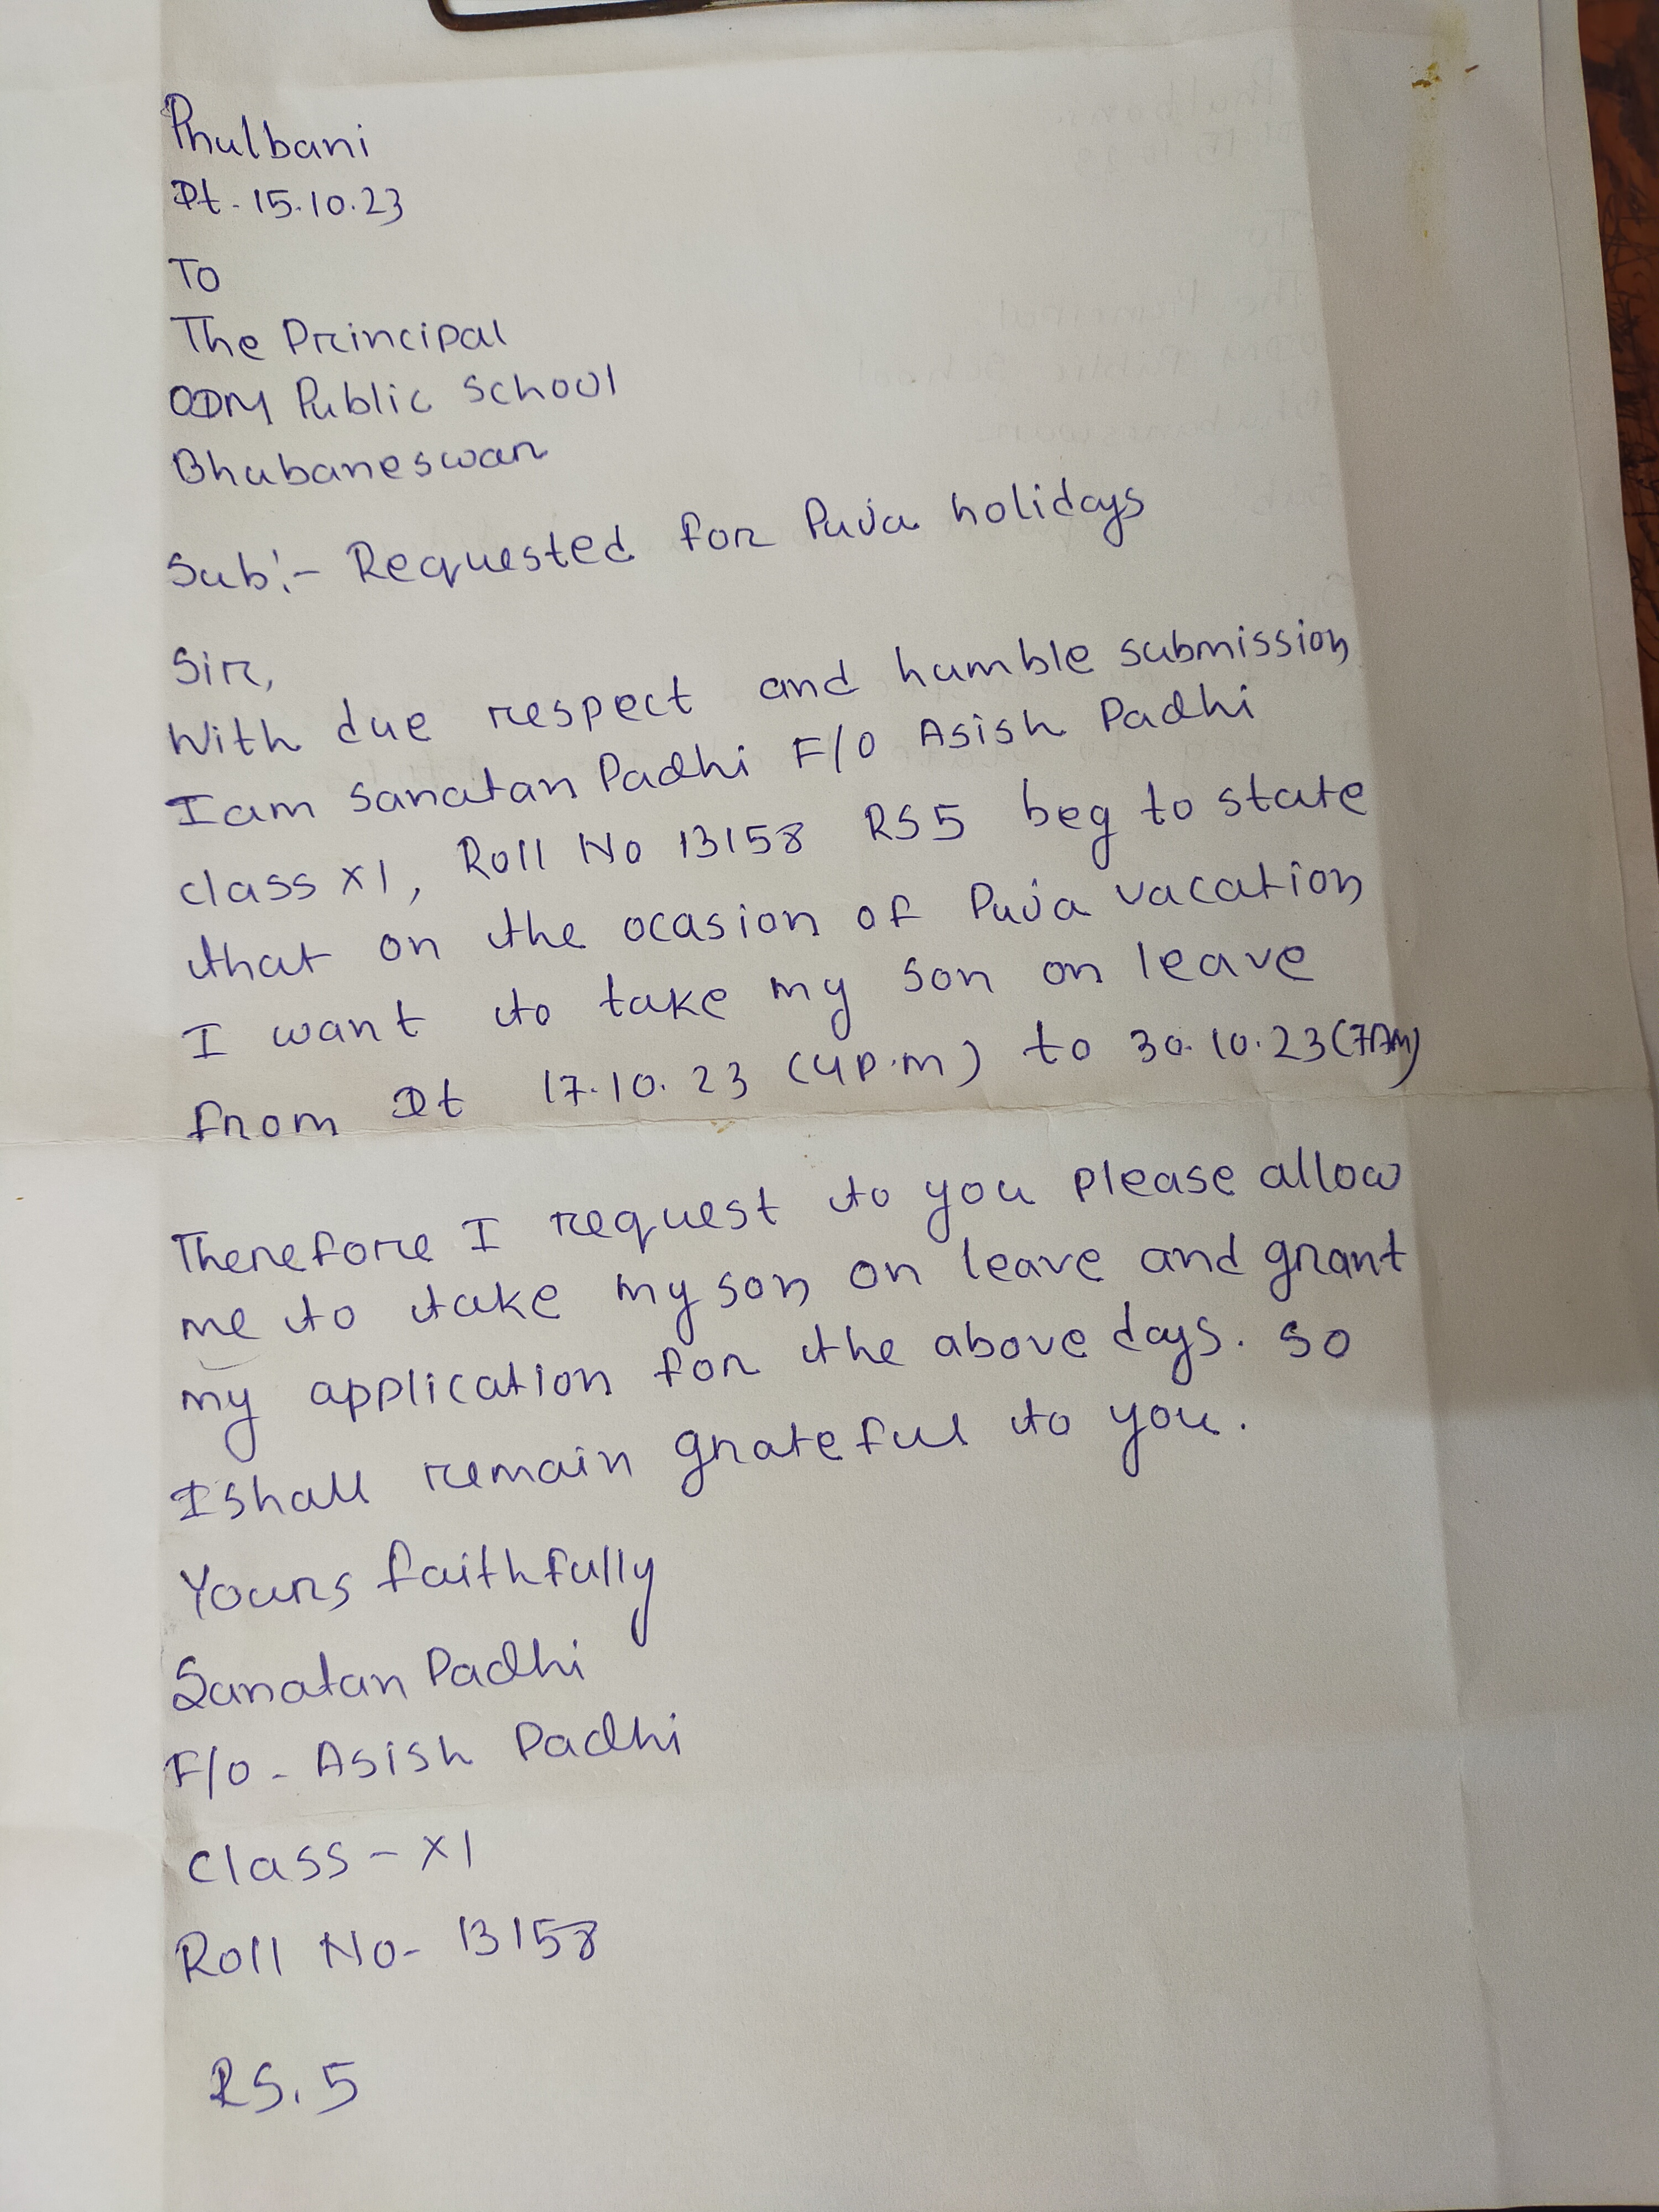 Phulbani
Dt - 15.10.23
To
The Principal
ODM Public School
Bhubaneswar
Sub:- Requested for Puja holidays
Sir,
With due respect and humble submission
I am Sanatan Padhi F/O Asish Padhi
class XI, Roll No 13158 RS5 beg to state
that on the ocasion of Puja vacation
I want to take my son on leave
from Dt 17.10.23 (4p.m) to 30.10.23 (7AM)
Therefore I request to you please allow
me to take my son on leave and grant
my application for the above days. So
I shall remain grateful to you.
Yours faithfully
Sanatan Padhi
F/O - Asish Padhi
Class - XI
Roll No - 13158
RS.5